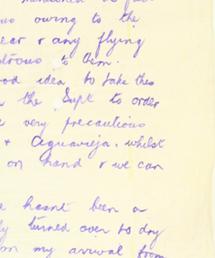 us owing to the
ear & any flying
strous to them.
od idea to take this
the Supt to order
e very precautious
& Aguavieja, whilst
on hand & we can
e hasnt been a
ly turned over to dry
on my arrival from